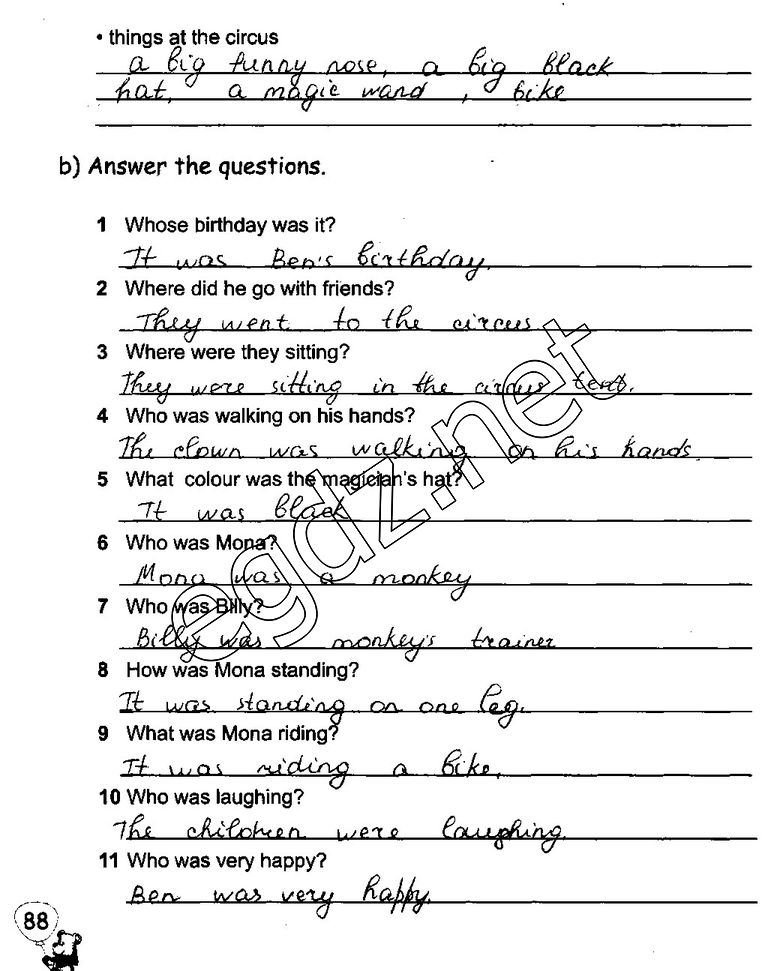 • things at the circus
a big funny nose, a big black
hat, a magic wand, bike
b) Answer the questions.
1 Whose birthday was it?
It was Ben's birthday.
2 Where did he go with friends?
They went to the circus
3 Where were they sitting?
They were sitting in the circus tent.
4 Who was walking on his hands?
The clown was walking on his hands
5 What colour was the magician's hat?
It was black
6 Who was Mona?
Mona was a monkey
7 Who was Billy?
Billy was monkey's trainer
8 How was Mona standing?
It was standing on one leg.
9 What was Mona riding?
It was riding a bike.
10 Who was laughing?
The children were laughing.
11 Who was very happy?
Ben was very happy.
88
egdz.net